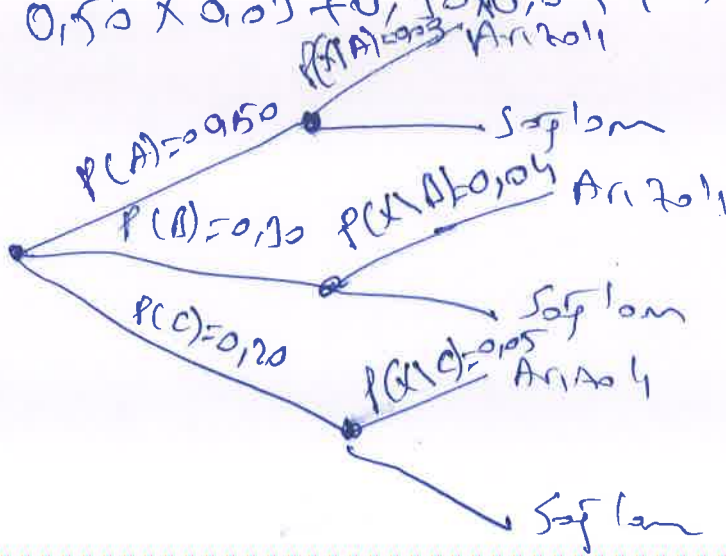 0,50 X 0,03 + 0,30x0,0
P(X\A)=0,03 Arızalı
P(A)=0,50
Sağlam
P(B)=0,30 P(X\B)=0,04 Arızalı
Sağlam
P(C)=0,20 P(X\C)=0,05 Arızalı
Sağlam